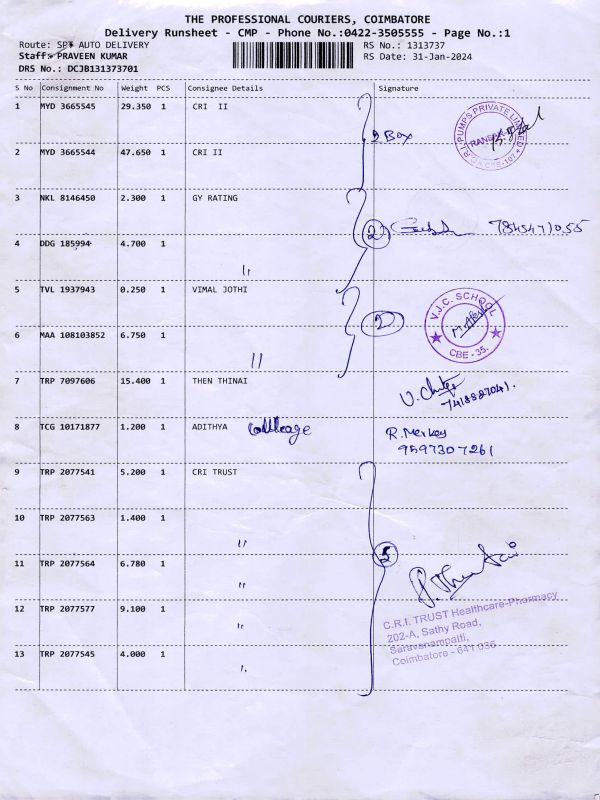 THE PROFESSIONAL COURIERS, COIMBATORE
Delivery Runsheet - CMP - Phone No.:0422-3505555 - Page No.:1
Route: SPT AUTO DELIVERY
RS No.: 1313737
Staff: PRAVEEN KUMAR
RS Date: 31-Jan-2024
DRS No.: DCJB131373701
S No Consignment No Weight PCS Consignee Details Signature
1 MYD 3665545 29.350 1 CRI II
2 Box
C.R.I. PUMPS PRIVATE LIMITED
CBE-107
2 MYD 3665544 47.650 1 CRI II
3 NKL 8146450 2.300 1 GY RATING
2 7845471055
4 DDG 185994 4.700 1 "
5 TVL 1937943 0.250 1 VIMAL JOTHI
2
V.J.C. SCHOOL
CBE - 35.
6 MAA 108103852 6.750 1 "
7 TRP 7097606 15.400 1 THEN THINAI
7418887041.
8 TCG 10171877 1.200 1 ADITHYA college
R. Merkey
9597307261
9 TRP 2077541 5.200 1 CRI TRUST
10 TRP 2077563 1.400 1 "
5
11 TRP 2077564 6.780 1 "
12 TRP 2077577 9.100 1 "
C.R.I. TRUST Healthcare-Pharmacy
202-A, Sathy Road,
Saravanampatti,
Coimbatore - 641 035
13 TRP 2077545 4.000 1 "